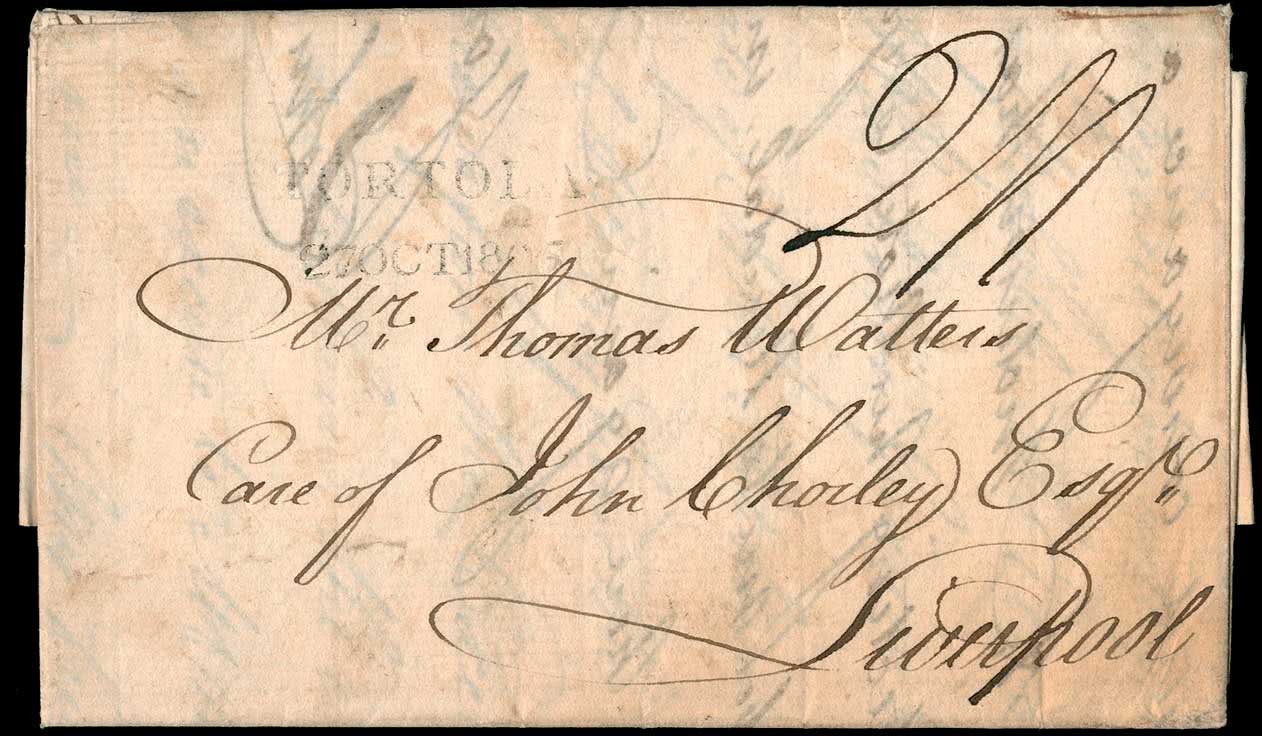 TORTOLA
27OCT18
Mr. Thomas Watters
Care of John Chorley Esqr.
Liverpool